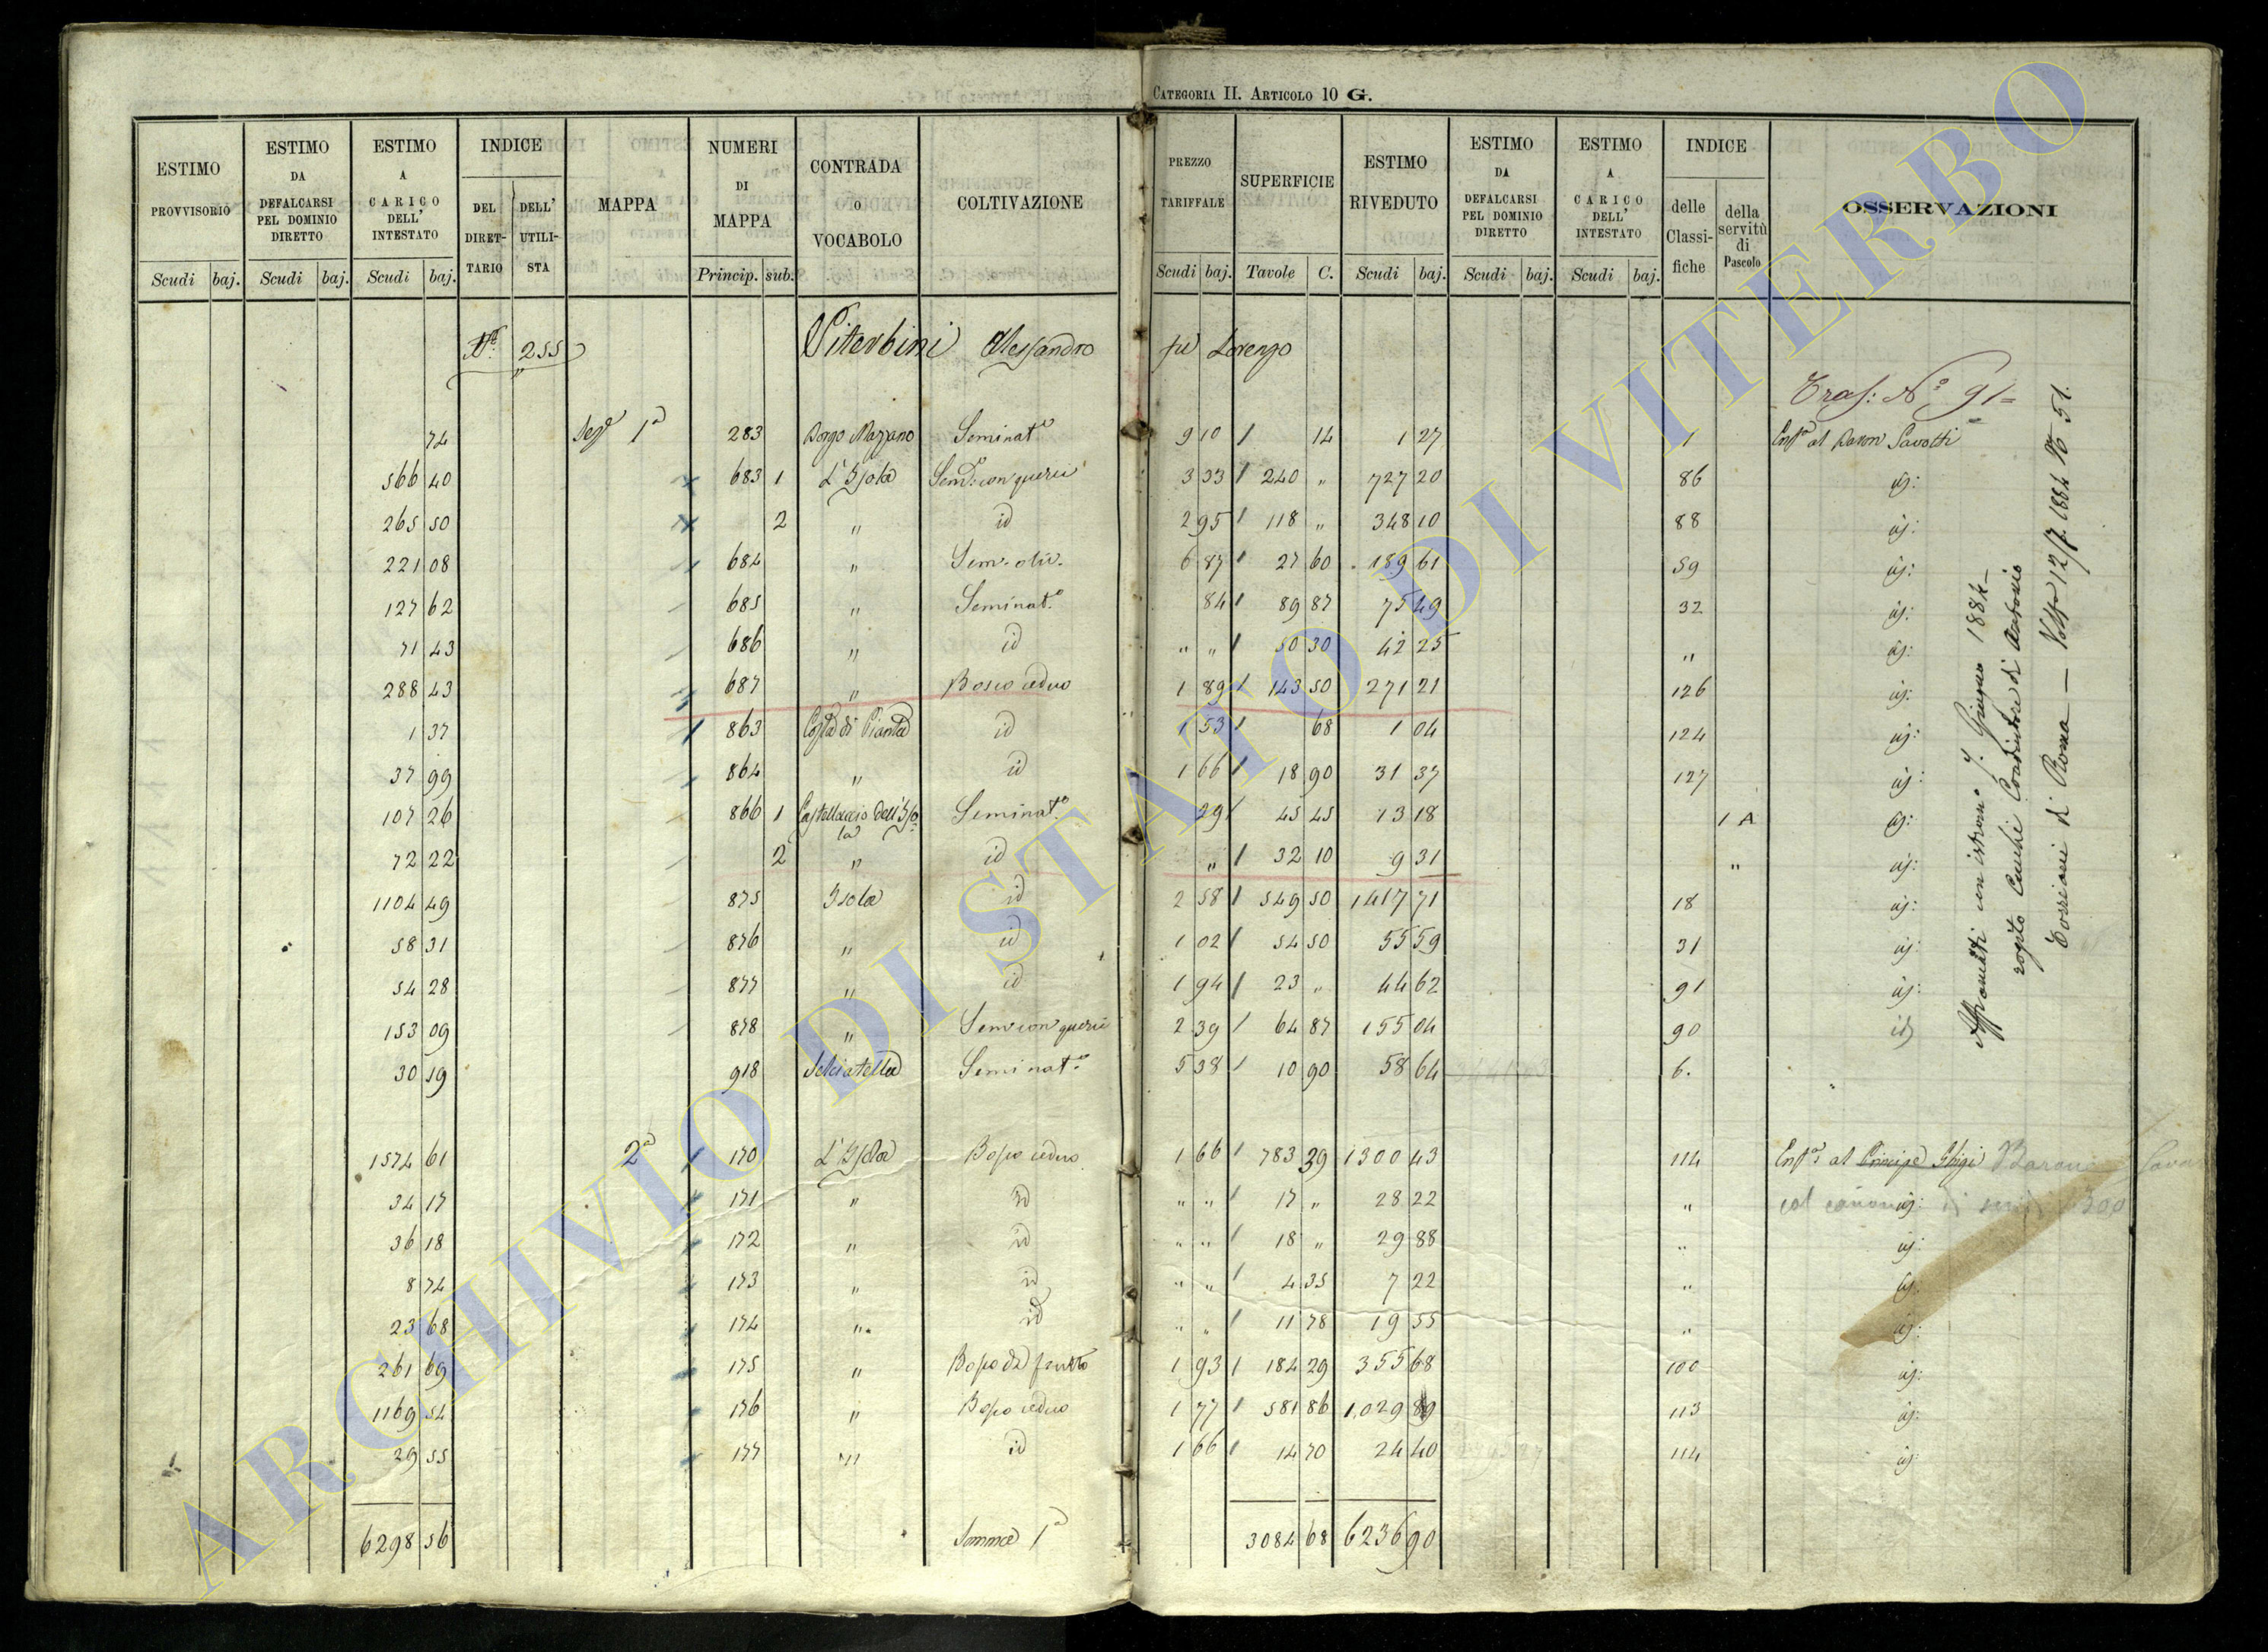 CATEGORIA II. ARTICOLO 10 G.
ESTIMO PROVVISORIO | ESTIMO DA DEFALCARSI PEL DOMINIO DIRETTO | ESTIMO A CARICO DELL' INTESTATO | INDICE | MAPPA | NUMERI DI MAPPA | CONTRADA O VOCABOLO | COLTIVAZIONE | PREZZO TARIFFALE | SUPERFICIE | ESTIMO RIVEDUTO | ESTIMO DA DEFALCARSI PEL DOMINIO DIRETTO | ESTIMO A CARICO DELL' INTESTATO | INDICE | OSSERVAZIONI
DEL DIRET-TARIO | DELL' UTILI-STA | delle Classi-fiche | della servitù di Pascolo
Scudi | baj. | Scudi | baj. | Scudi | baj. | Princip. | sub. | Scudi | baj. | Tavole | C. | Scudi | baj. | Scudi | baj. | Scudi | baj.
255 Viterbini Alessandro fu Lorenzo
Tras: Nº 91=
74 | Sezе 1ª | 283 | Borgo Mazzano | Seminatº | 9 10 | 14 | 1 27 | 1 | Enfª al Baron Savotti
566 40 | 683 | 1 | L'Isola | Semº: con querce | 3 33 | 240 " | 727 20 | 86 | id:
265 50 | 2 | " | id | 2 95 | 118 " | 348 10 | 88 | id:
221 08 | 684 | " | Sem: oliv. | 6 87 | 27 60 | 189 61 | 59 | id:
127 62 | 685 | " | Seminatº | 84 | 89 87 | 75 49 | 32 | id:
71 43 | 686 | " | id | " " | 50 30 | 42 25 | " | id:
288 43 | 687 | " | Bosco ceduo | 1 89 | 143 50 | 271 21 | 126 | id:
1 37 | 863 | Costa di Pianta | id | 1 53 | 68 | 1 04 | 124 | id:
37 99 | 864 | " | id | 1 66 | 18 90 | 31 37 | 127 | id:
107 26 | 866 | 1 | Castellaccio dell'Isola | Seminatº | 29 | 45 45 | 13 18 | 1 A | id:
72 22 | 2 | " | id | " | 32 10 | 9 31 | " | id:
1104 49 | 875 | Isola | id | 2 58 | 549 50 | 1417 71 | 18 | id:
58 31 | 876 | " | id | 1 02 | 54 50 | 55 59 | 31 | id:
54 28 | 877 | " | id | 1 94 | 23 " | 44 62 | 91 | id:
153 09 | 878 | " | Sem con querce | 2 39 | 64 87 | 155 04 | 90 | id
30 59 | 918 | Selciatella | Seminatº | 5 38 | 10 90 | 58 64 | 6. | "
1574 61 | 2ª | 170 | L'Isola | Bosco ceduo | 1 66 | 783 39 | 1300 43 | 114 | Enfª: al Principe Ghigi Barone
34 17 | 171 | " | id | " " | 17 " | 28 22 | " | id: col canone di 300
36 18 | 172 | " | id | " " | 18 " | 29 88 | " | id:
8 74 | 173 | " | id | " " | 4 35 | 7 22 | " | id:
23 68 | 174 | " | id | " " | 11 78 | 19 55 | " | id:
261 69 | 175 | " | Bosco da frutto | 1 93 | 184 29 | 355 68 | 100 | id:
1169 54 | 176 | " | Bosco ceduo | 1 77 | 581 86 | 1,029 89 | 113 | id:
29 55 | 177 | " | id | 1 66 | 14 70 | 24 40 | 114 | id:
6298 56 | Somma 1ª | 3084 68 | 6236 90
Affrancati con istromº 7. Giugno 1884 –
rogito Coadiutore di Antonio
Torriani di Roma — Volta 12/7. 1884 Nº 51.
ARCHIVIO DI STATO DI VITERBO